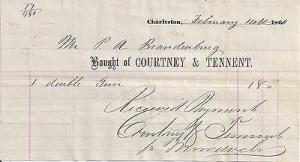 Charleston, February 186
Mr P A Brandenburg
Bought of COURTNEY & TENNENT.
1 double Gun 18 "
Received Payment
Courtney & Tennent